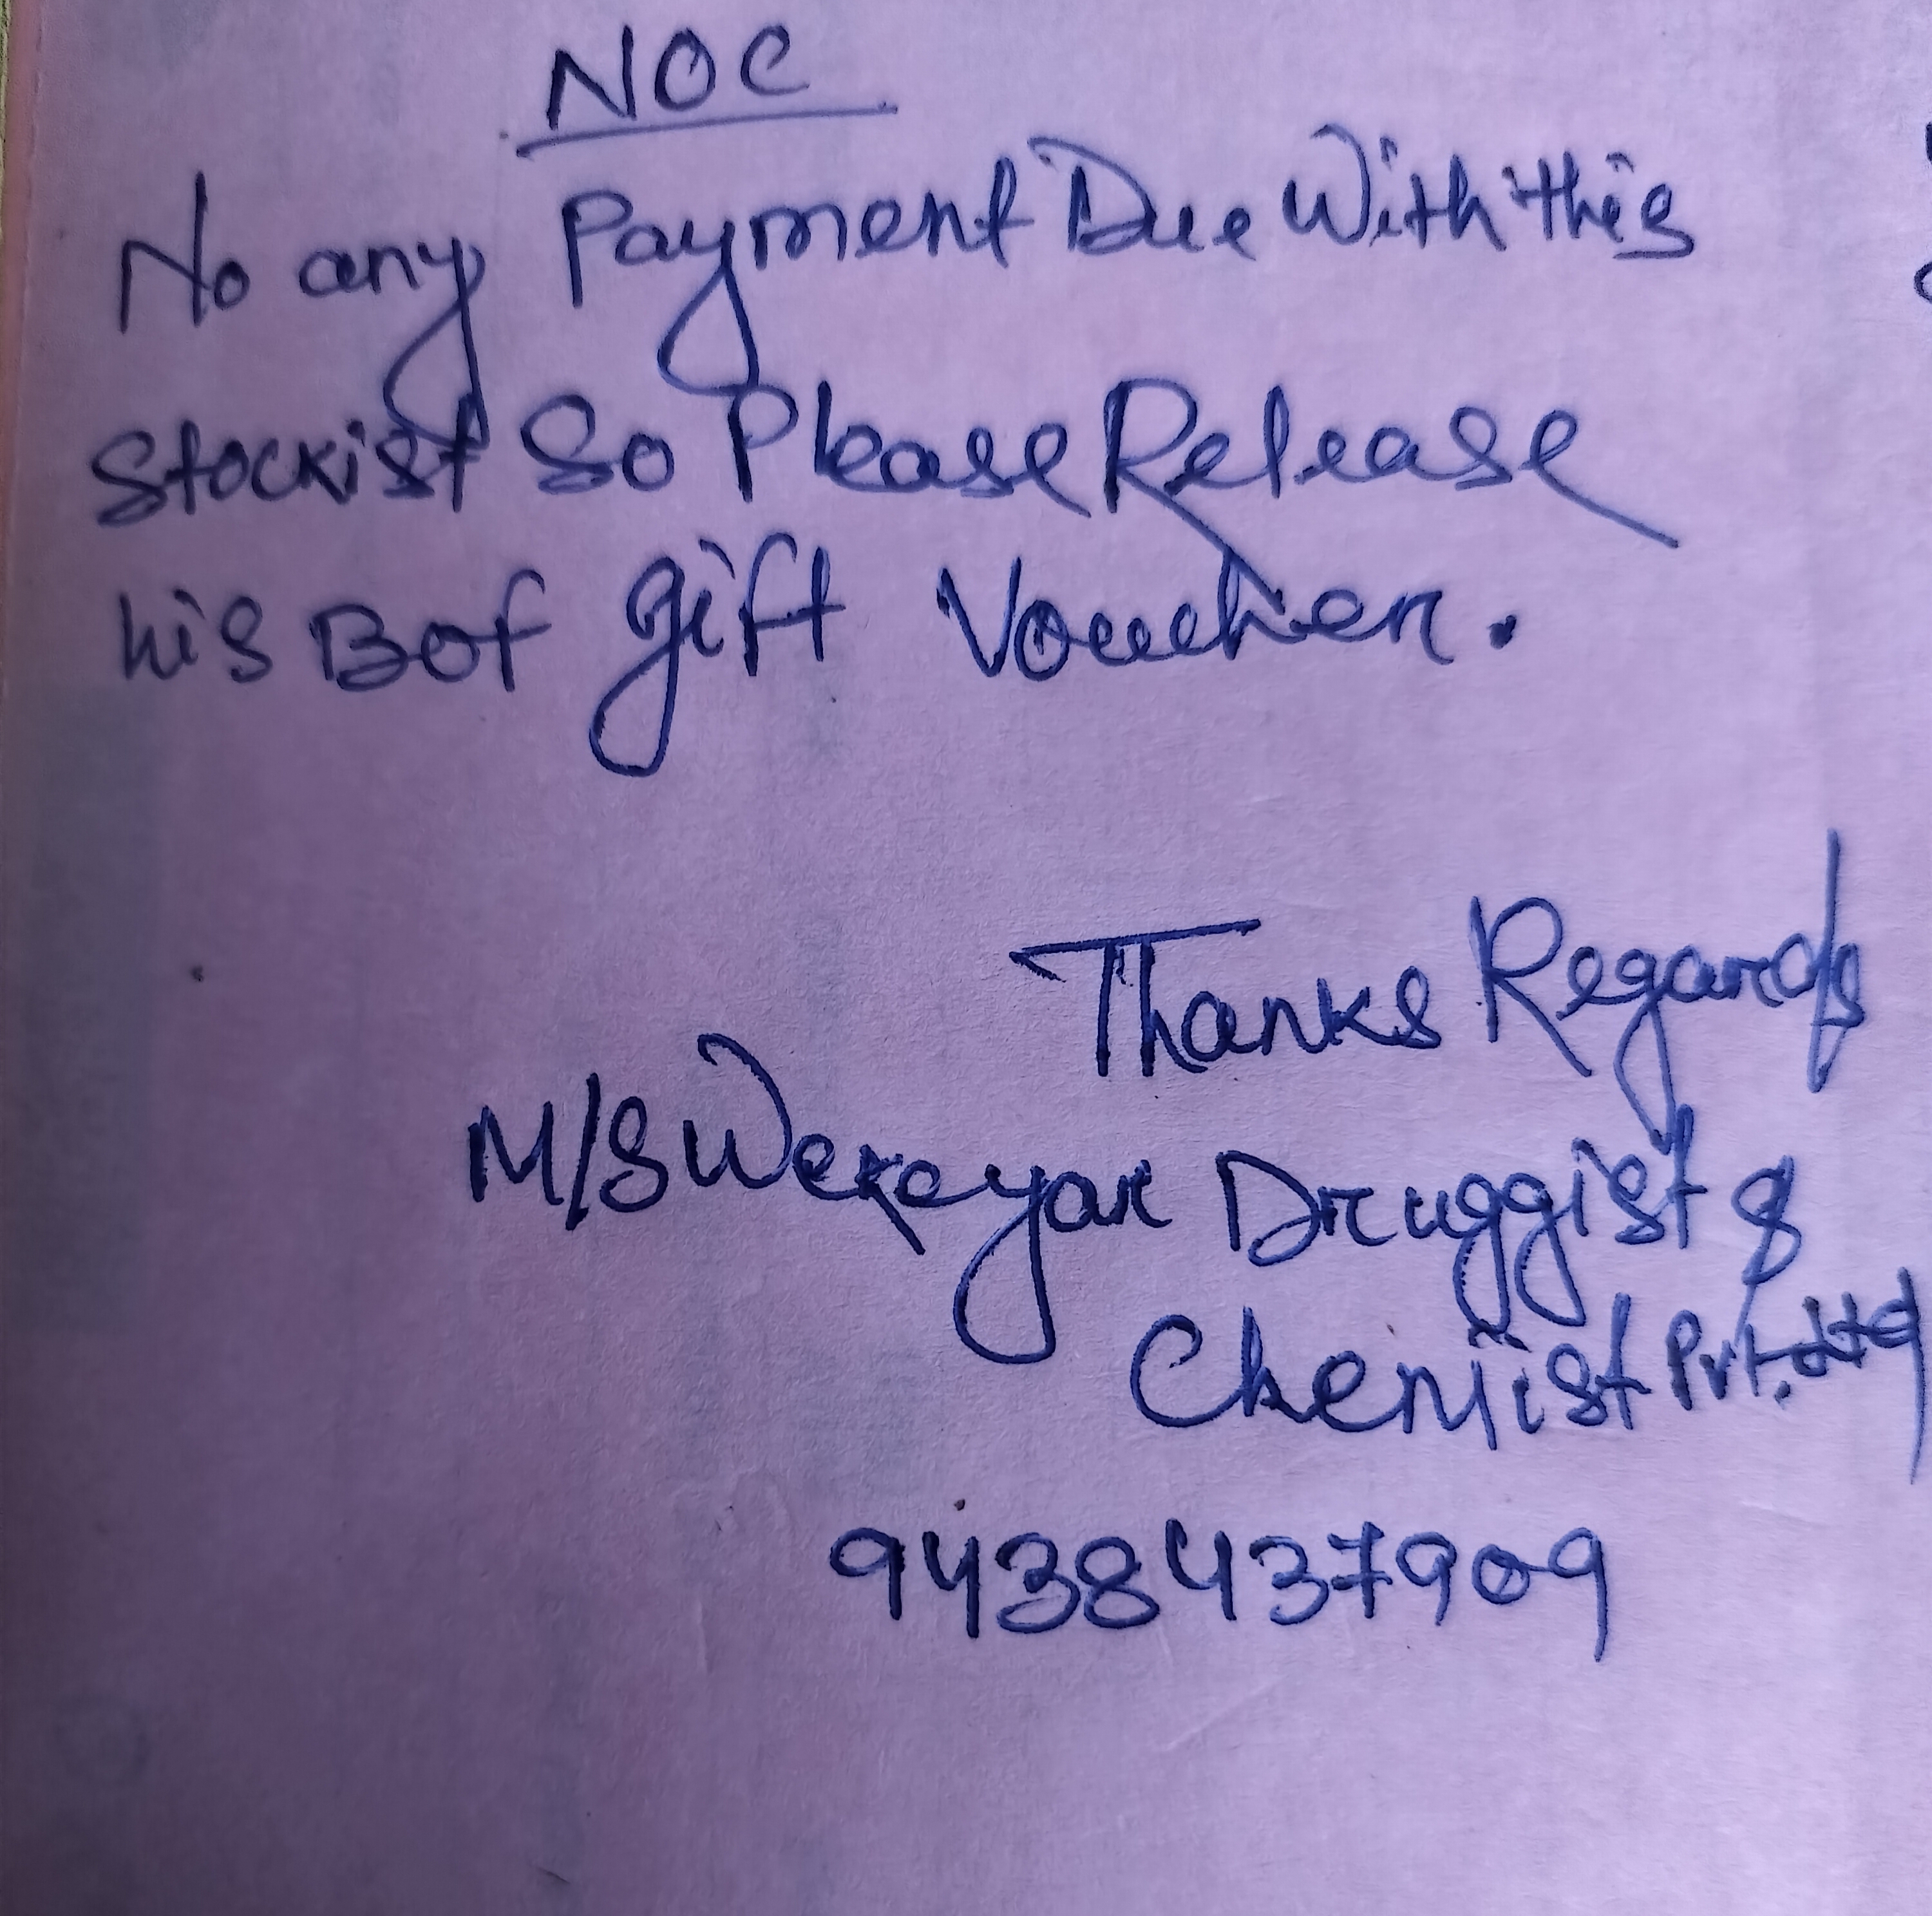 NOC
No any Payment Due With this
Stockist So Please Release
his Bof gift Voucher.
Thanks Regards
M/S Druggist &
Chemist Pvt. Ltd
9438437909